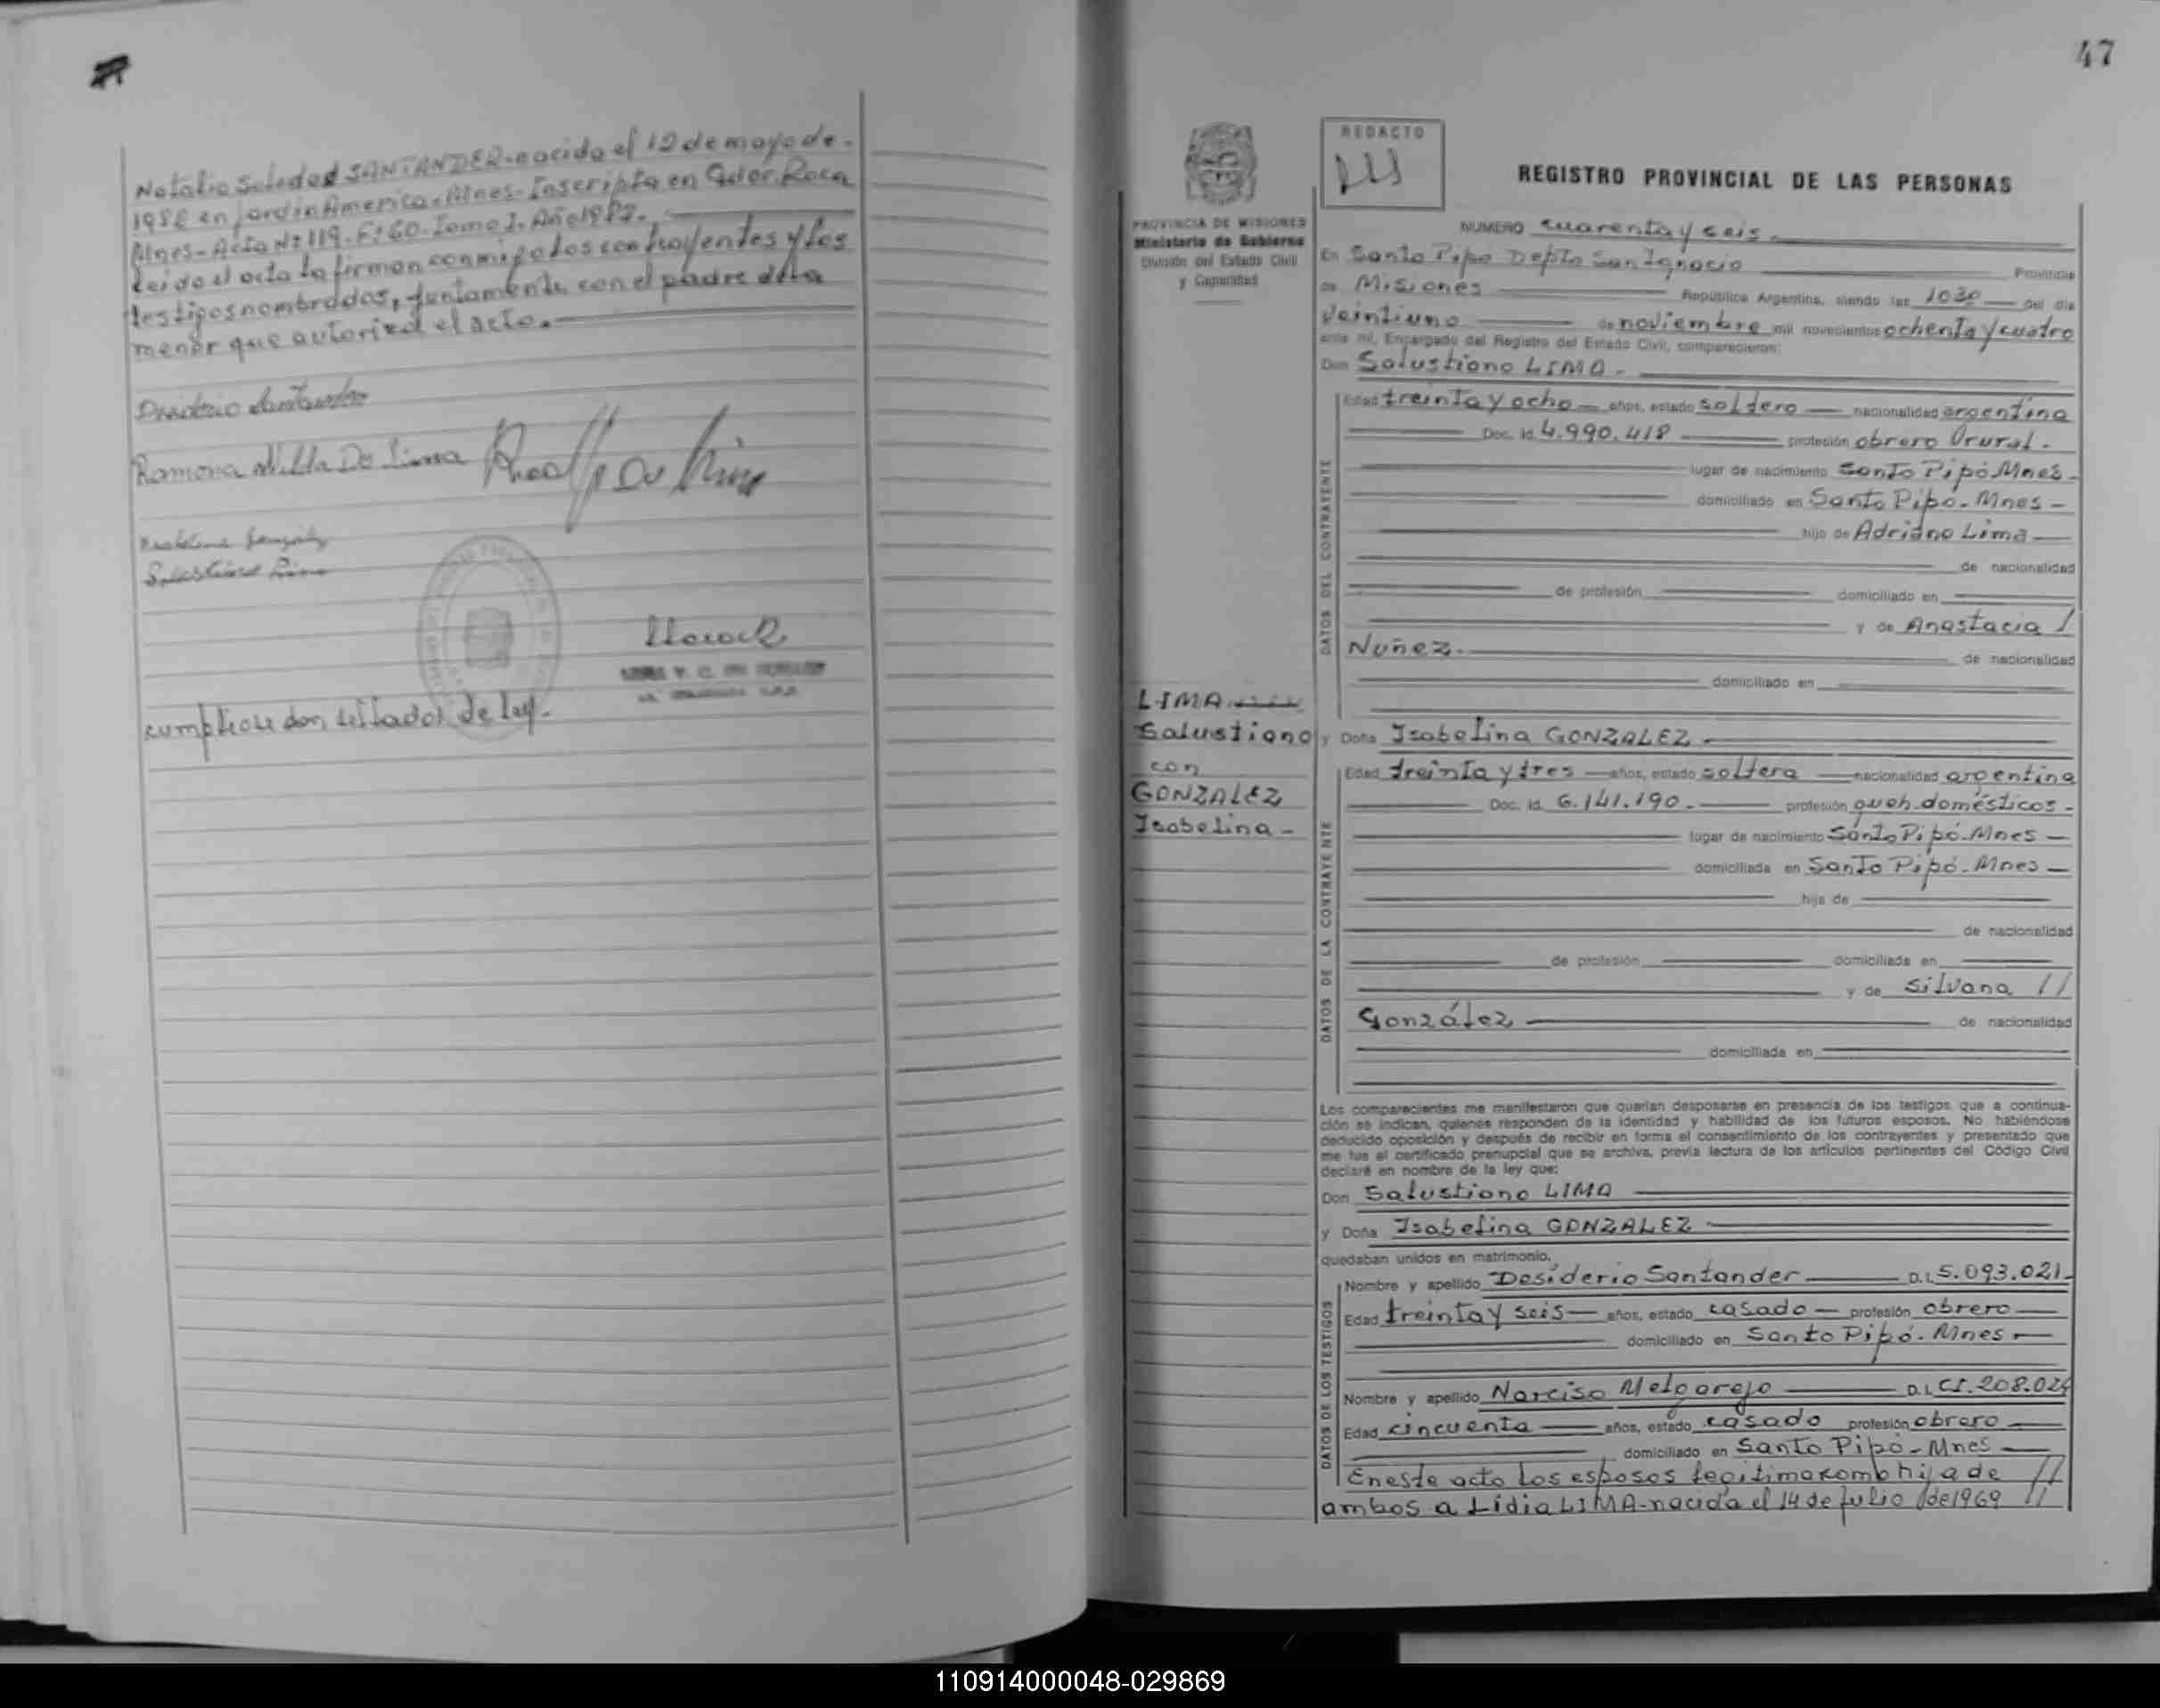 Natalia Soledad SANTANDER-nacida el 12 de mayo de-
1982 en jardin America-Mnes-Inscripta en Gdor. Roca
Mnes-Acta Nº 119-Fº 60-Tomo I. Año 1982.
Leido el acta la firman conmigo los contrayentes y los
testigos nombrados, juntamente con el padre de la
menor que autorizó el acto.
Ramona De Lima
cumplese con sellados de ley.
47
REDACTO
REGISTRO PROVINCIAL DE LAS PERSONAS
PROVINCIA DE MISIONES
Ministerio de Gobierno
División del Estado Civil
y Capacidad
NUMERO cuarenta y seis.
En Santo Pipo Depto San Ignacio Provincia
de Misiones República Argentina, siendo las 1030 del día
veintiuno de noviembre mil novecientos ochenta y cuatro
ante mí, Encargado del Registro del Estado Civil, comparecieron:
Don Salustiano LIMA.
DATOS DEL CONTRAYENTE
Edad treinta y ocho años, estado soltero nacionalidad argentina
Doc. Id. 4.990.418 profesión obrero rural.
lugar de nacimiento Santo Pipó Mnes-
domiciliado en Santo Pipó-Mnes-
hijo de Adriano Lima
de nacionalidad
de profesión domiciliado en
y de Anastacia /
Nuñez. de nacionalidad
domiciliado en
LIMA
Salustiano
con
GONZALEZ
Isabelina-
y Doña Isabelina GONZALEZ
DATOS DE LA CONTRAYENTE
Edad treinta y tres años, estado soltera nacionalidad argentina
Doc. Id. 6.141.190. profesión queh. domésticos-
lugar de nacimiento Santo Pipó-Mnes
domiciliada en Santo Pipó-Mnes
hija de
de nacionalidad
de profesión domiciliada en
y de Silvana //
González de nacionalidad
domiciliada en
Los comparecientes me manifestaron que querían desposarse en presencia de los testigos que a continua-
ción se indican, quienes responden de la identidad y habilidad de los futuros esposos. No habiéndose
deducido oposición y después de recibir en forma el consentimiento de los contrayentes y presentado que
me fue el certificado prenupcial que se archiva, previa lectura de los artículos pertinentes del Código Civil
declaré en nombre de la ley que:
Don Salustiano LIMA
y Doña Isabelina GONZALEZ
quedaban unidos en matrimonio.
DATOS DE LOS TESTIGOS
Nombre y apellido Desiderio Santander D.I. 5.093.021-
Edad treinta y seis años, estado casado profesión obrero
domiciliado en Santo Pipó-Mnes
Nombre y apellido Narciso Melgarejo D.I. CI.208.024
Edad cincuenta años, estado casado profesión obrero
domiciliado en Santo Pipó-Mnes
En este acto los esposos legitiman como hija de //
ambos a Lidia LIMA-nacida el 14 de julio de 1969 //
110914000048-029869